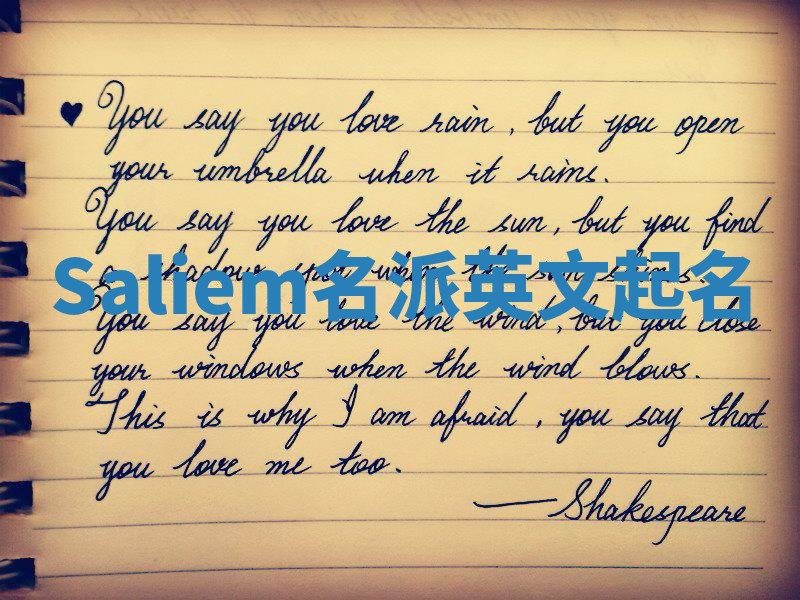 ♥ You say you love rain, but you open
your umbrella when it rains.
You say you love the sun, but you find
a shadow spot when the sun shines.
Saliem名派英文起名
You say you love the wind, but you close
your windows when the wind blows.
This is why I am afraid, you say that
you love me too.
—Shakespeare